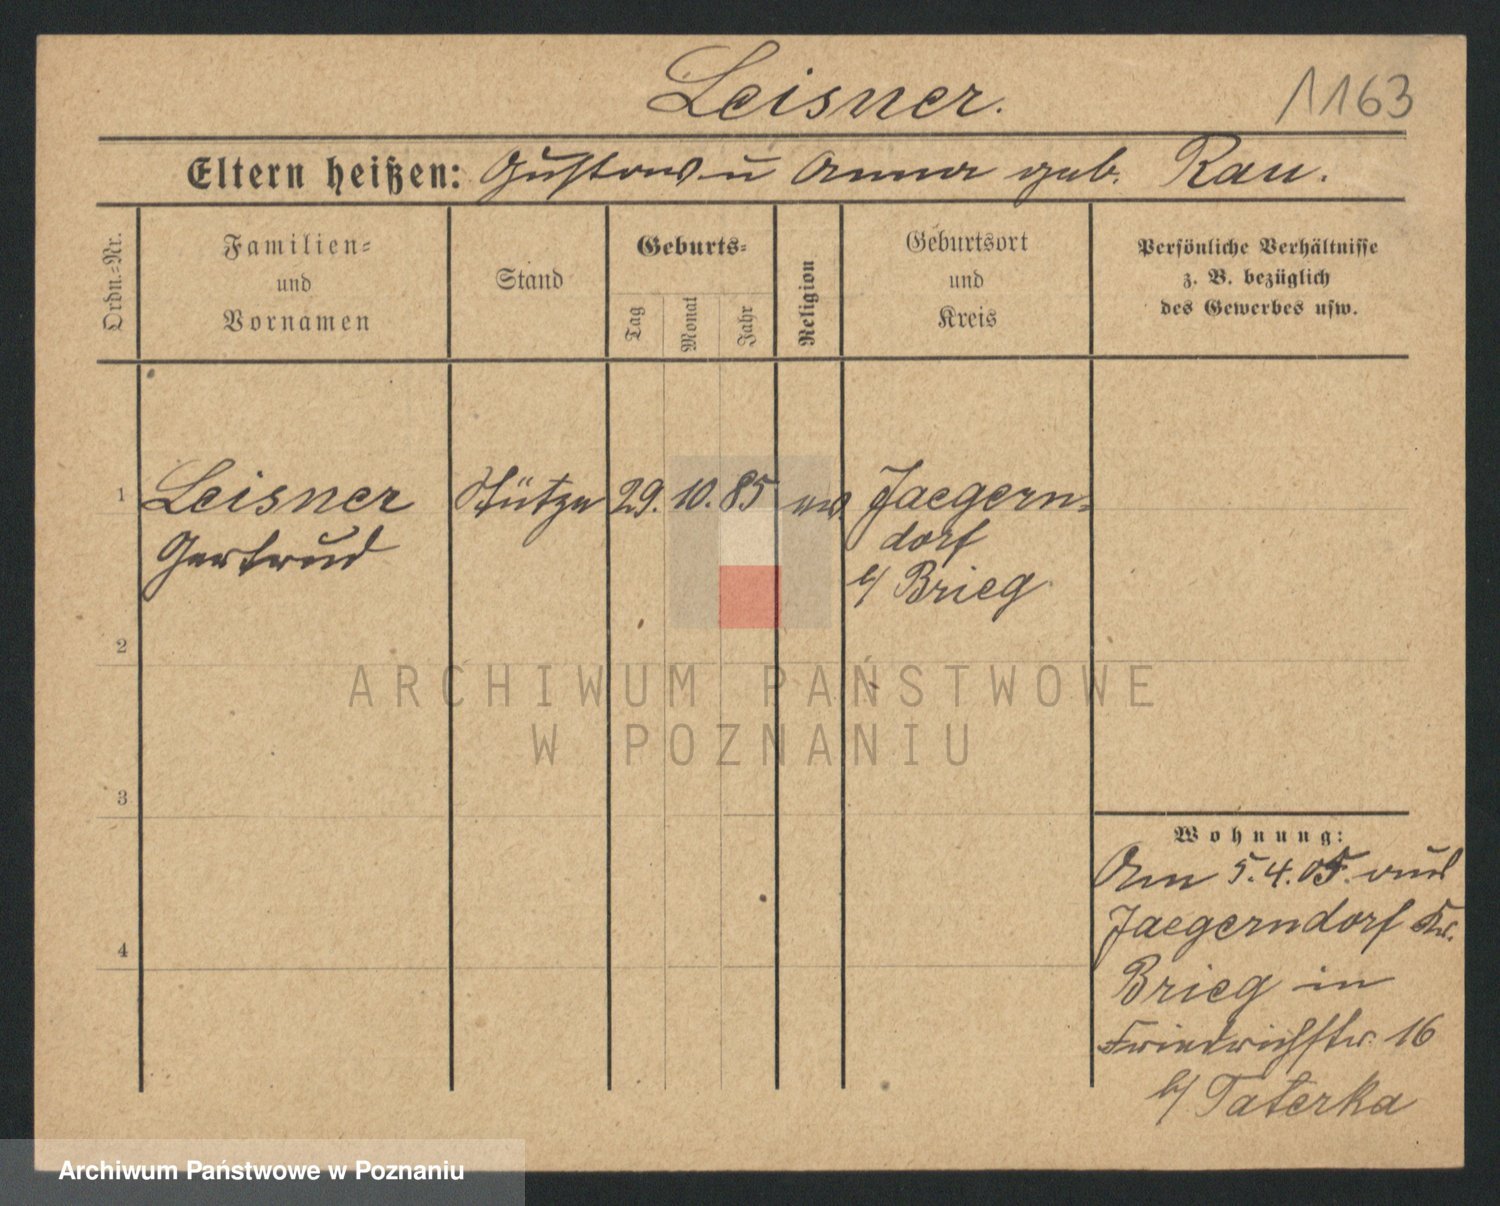 Leisner.
1163
Eltern heißen: Gustav u Anna geb. Rau.
Ordn.-Nr.
Familien-
und
Vornamen
Stand
Geburts-
Tag
Monat
Jahr
Religion
Geburtsort
und
Kreis
Persönliche Verhältnisse
z. B. bezüglich
des Gewerbes usw.
1 Leisner Stütze 29. 10. 85 ev. Jaegern-
Gertrud dorf
b/ Brieg
2
ARCHIWUM PAŃSTWOWE
W POZNANIU
3
Wohnung:
Am 5.4.05. aus
Jaegerndorf Kr.
4
Brieg in
Friedrichstr. 16
b/ Taterka
Archiwum Państwowe w Poznaniu